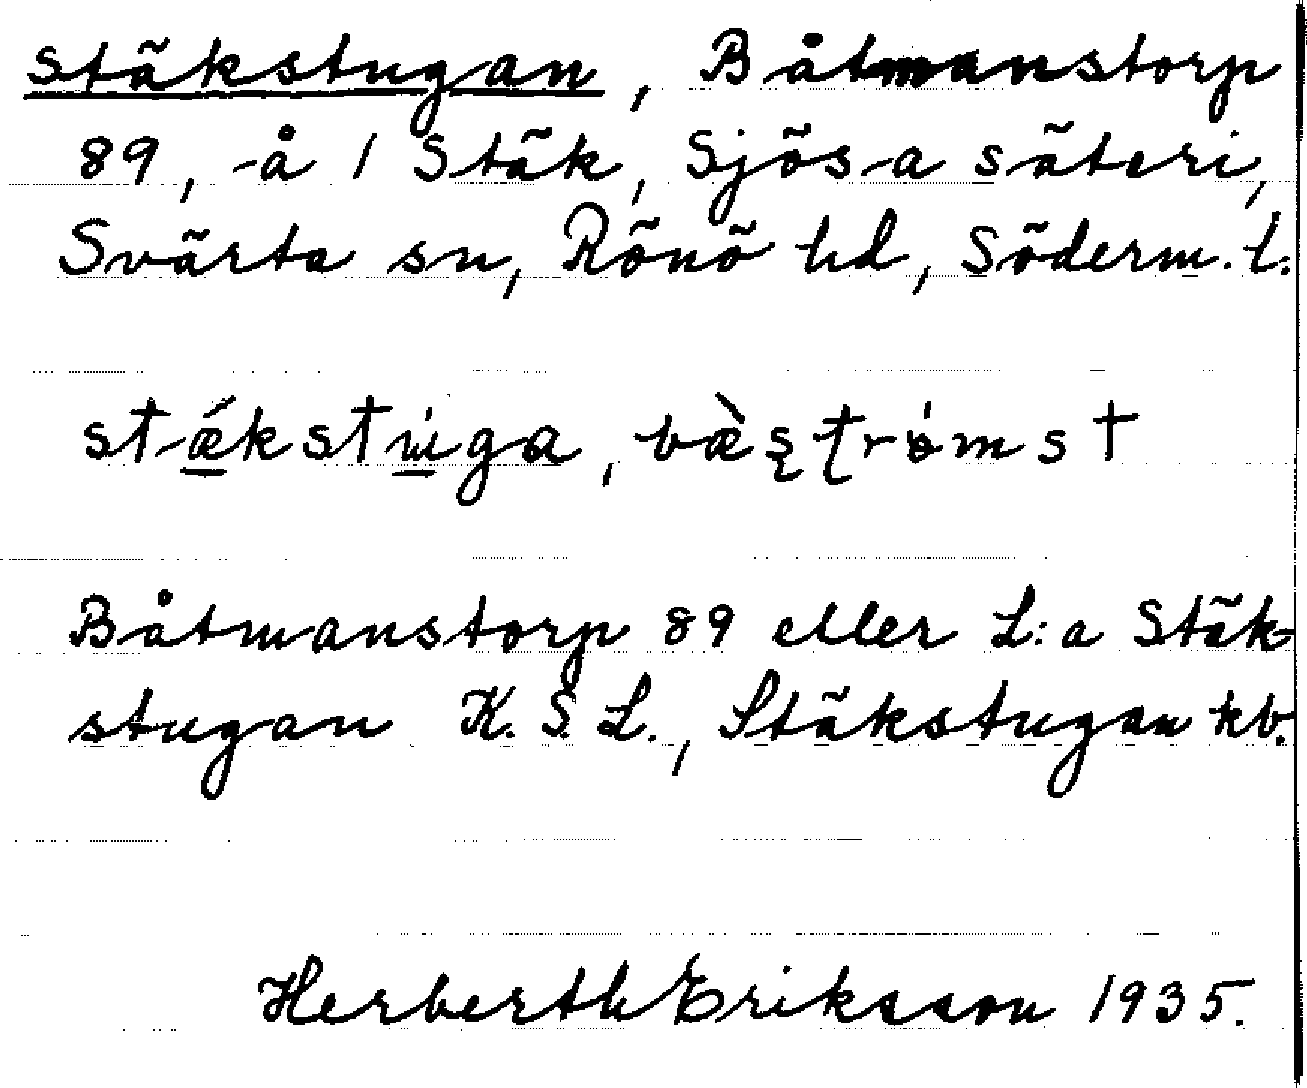 Stäkstugan, Båtmanstorp
89, å 1 Stäk, Sjösa säteri,
Svärta sn, Rönö hd, Söderm. l.
stǽkstu̇ga, bæ̀ʂʈrȯmst
Båtmanstorp 89 eller L:a Stäk-
stugan K. S. L., Stäkstugan kb.
Herberth Eriksson 1935.